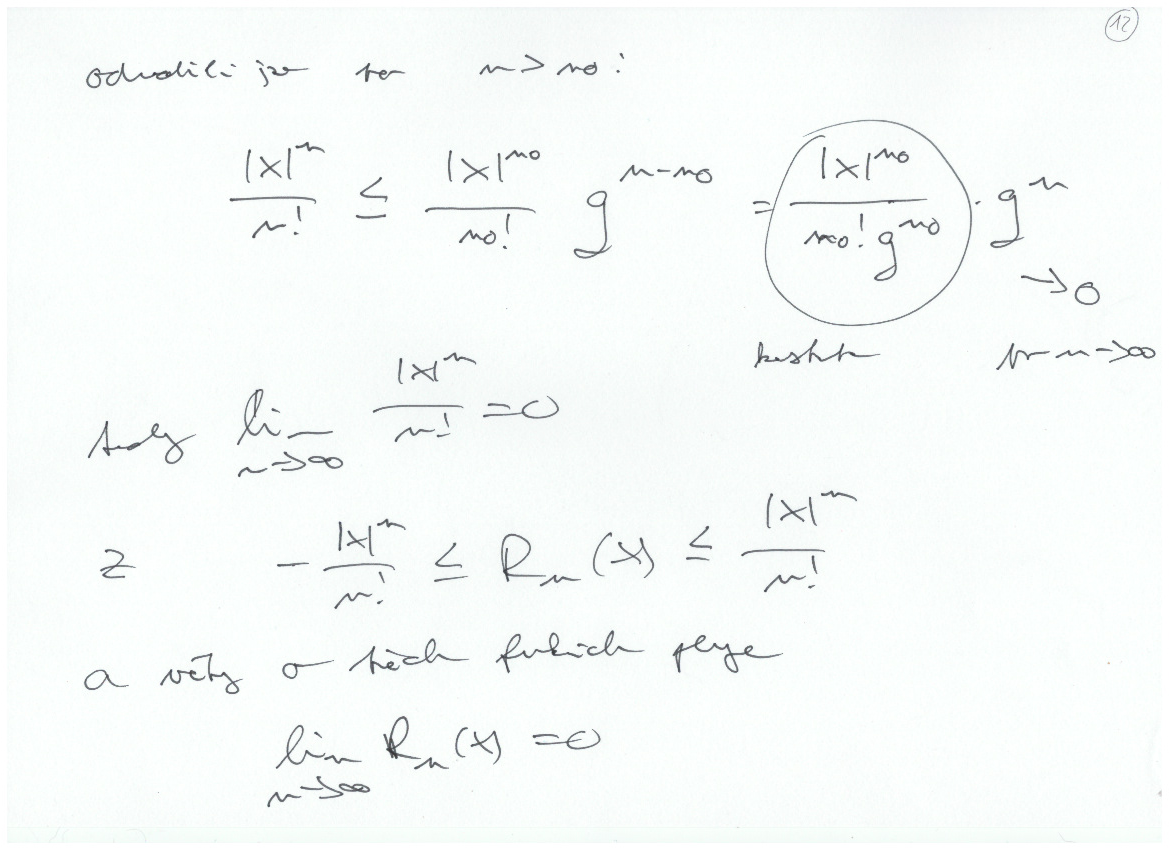 12
odvodili jsme pro n > n0:
|x|^n / n! ≤ |x|^n0 / n0! g^(n-n0) = |x|^n0 / (n0! g^n0) · g^n
→ 0
konstanta pro n→∞
tedy lim n→∞ |x|^n / n! = 0
z - |x|^n / n! ≤ R_n (x) ≤ |x|^n / n!
a věty o třech funkcích plyne
lim n→∞ R_n (x) = 0